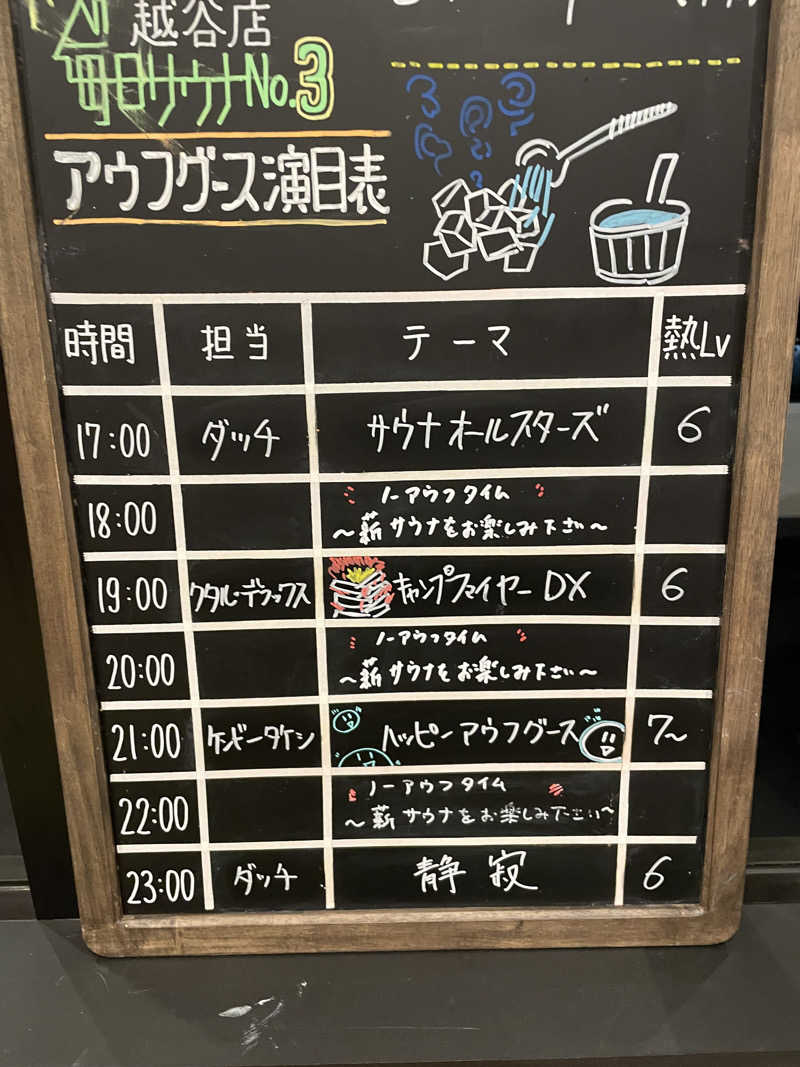 越谷店
毎日サウナNo.3
アウフグース演目表
時間 担当 テーマ 熱Lv
17:00 ダッチ サウナオールスターズ 6
18:00 ノーアウフタイム
～薪サウナをお楽しみ下さい～
19:00 クタル・デラックス キャンプファイヤーDX 6
20:00 ノーアウフタイム
～薪サウナをお楽しみ下さい～
21:00 ケンビータケシ ハッピーアウフグース 7～
22:00 ノーアウフタイム
～薪サウナをお楽しみ下さい～
23:00 ダッチ 静寂 6